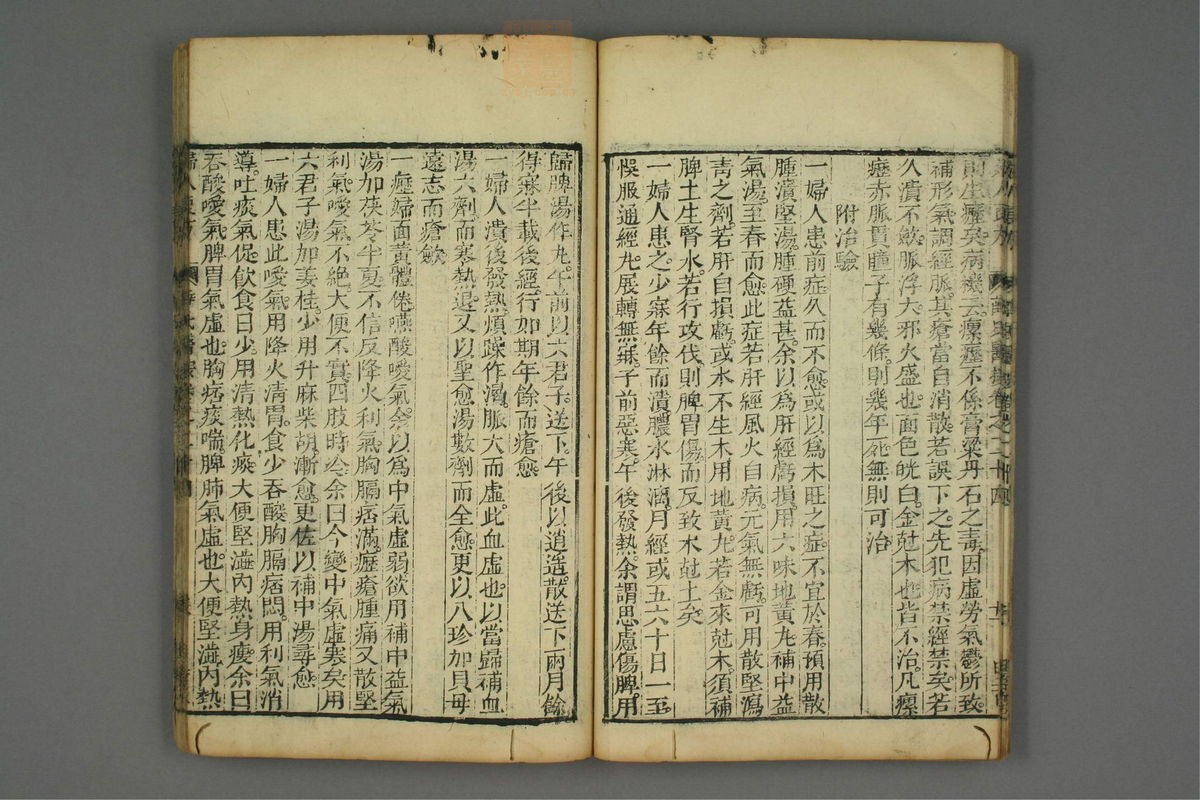 則生瘰矣病機云瘰癧不係膏粱丹石之毒因虛勞氣鬱所致
補形氣調經脈其瘡當自消散若誤下之先犯病禁經禁矣若
久潰不斂脈浮大邪火盛也面色㿠白金尅木也皆不治凡瘰
癧赤脈貫瞳子有幾條則幾年死無則可治
附治驗
一婦人患前症久而不愈或以爲木旺之症不宜於春預用散
腫潰堅湯腫硬益甚余以爲肝經虧損用六味地黃丸補中益
氣湯至春而愈此症若肝經風火自病元氣無虧可用散堅瀉
青之劑若肝自損虧或水不生木用地黃丸若金來尅木須補
脾土生腎水若行攻伐則脾胃傷而反致木尅土矣
一婦人患之少寐年餘而潰膿水淋漓月經或五六十日一至
悞服通經丸展轉無寐子前惡寒午後發熱余謂思慮傷脾用
歸脾湯作丸午前以六君子送下午後以逍遙散送下兩月餘
得寐半載後經行如期年餘而瘡愈
一婦人潰後發熱煩躁作渴脈大而虛此血虛也以當歸補血
湯六劑而寒熱退又以聖愈湯數劑而全愈更以八珍加貝母
遠志而瘡歛
一瘰婦面黃體倦嚥酸噯氣余以爲中氣虛弱欲用補中益氣
湯加茯苓半夏不信反降火利氣胸膈痞滿瘰瘡腫痛又散堅
利氣噯氣不絕大便不實四肢時冷余曰今變中氣虛寒矣用
六君子湯加姜桂少用升麻柴胡漸愈更佐以補中湯尋愈
一婦人患此噯氣用降火清胃食少吞酸胸膈痞悶用利氣消
導吐痰氣促飲食日少用清熱化痰大便堅澁內熱身瘦余曰
吞酸噯氣脾胃氣虛也胸痞痰喘脾肺氣虛也大便堅澁內熱